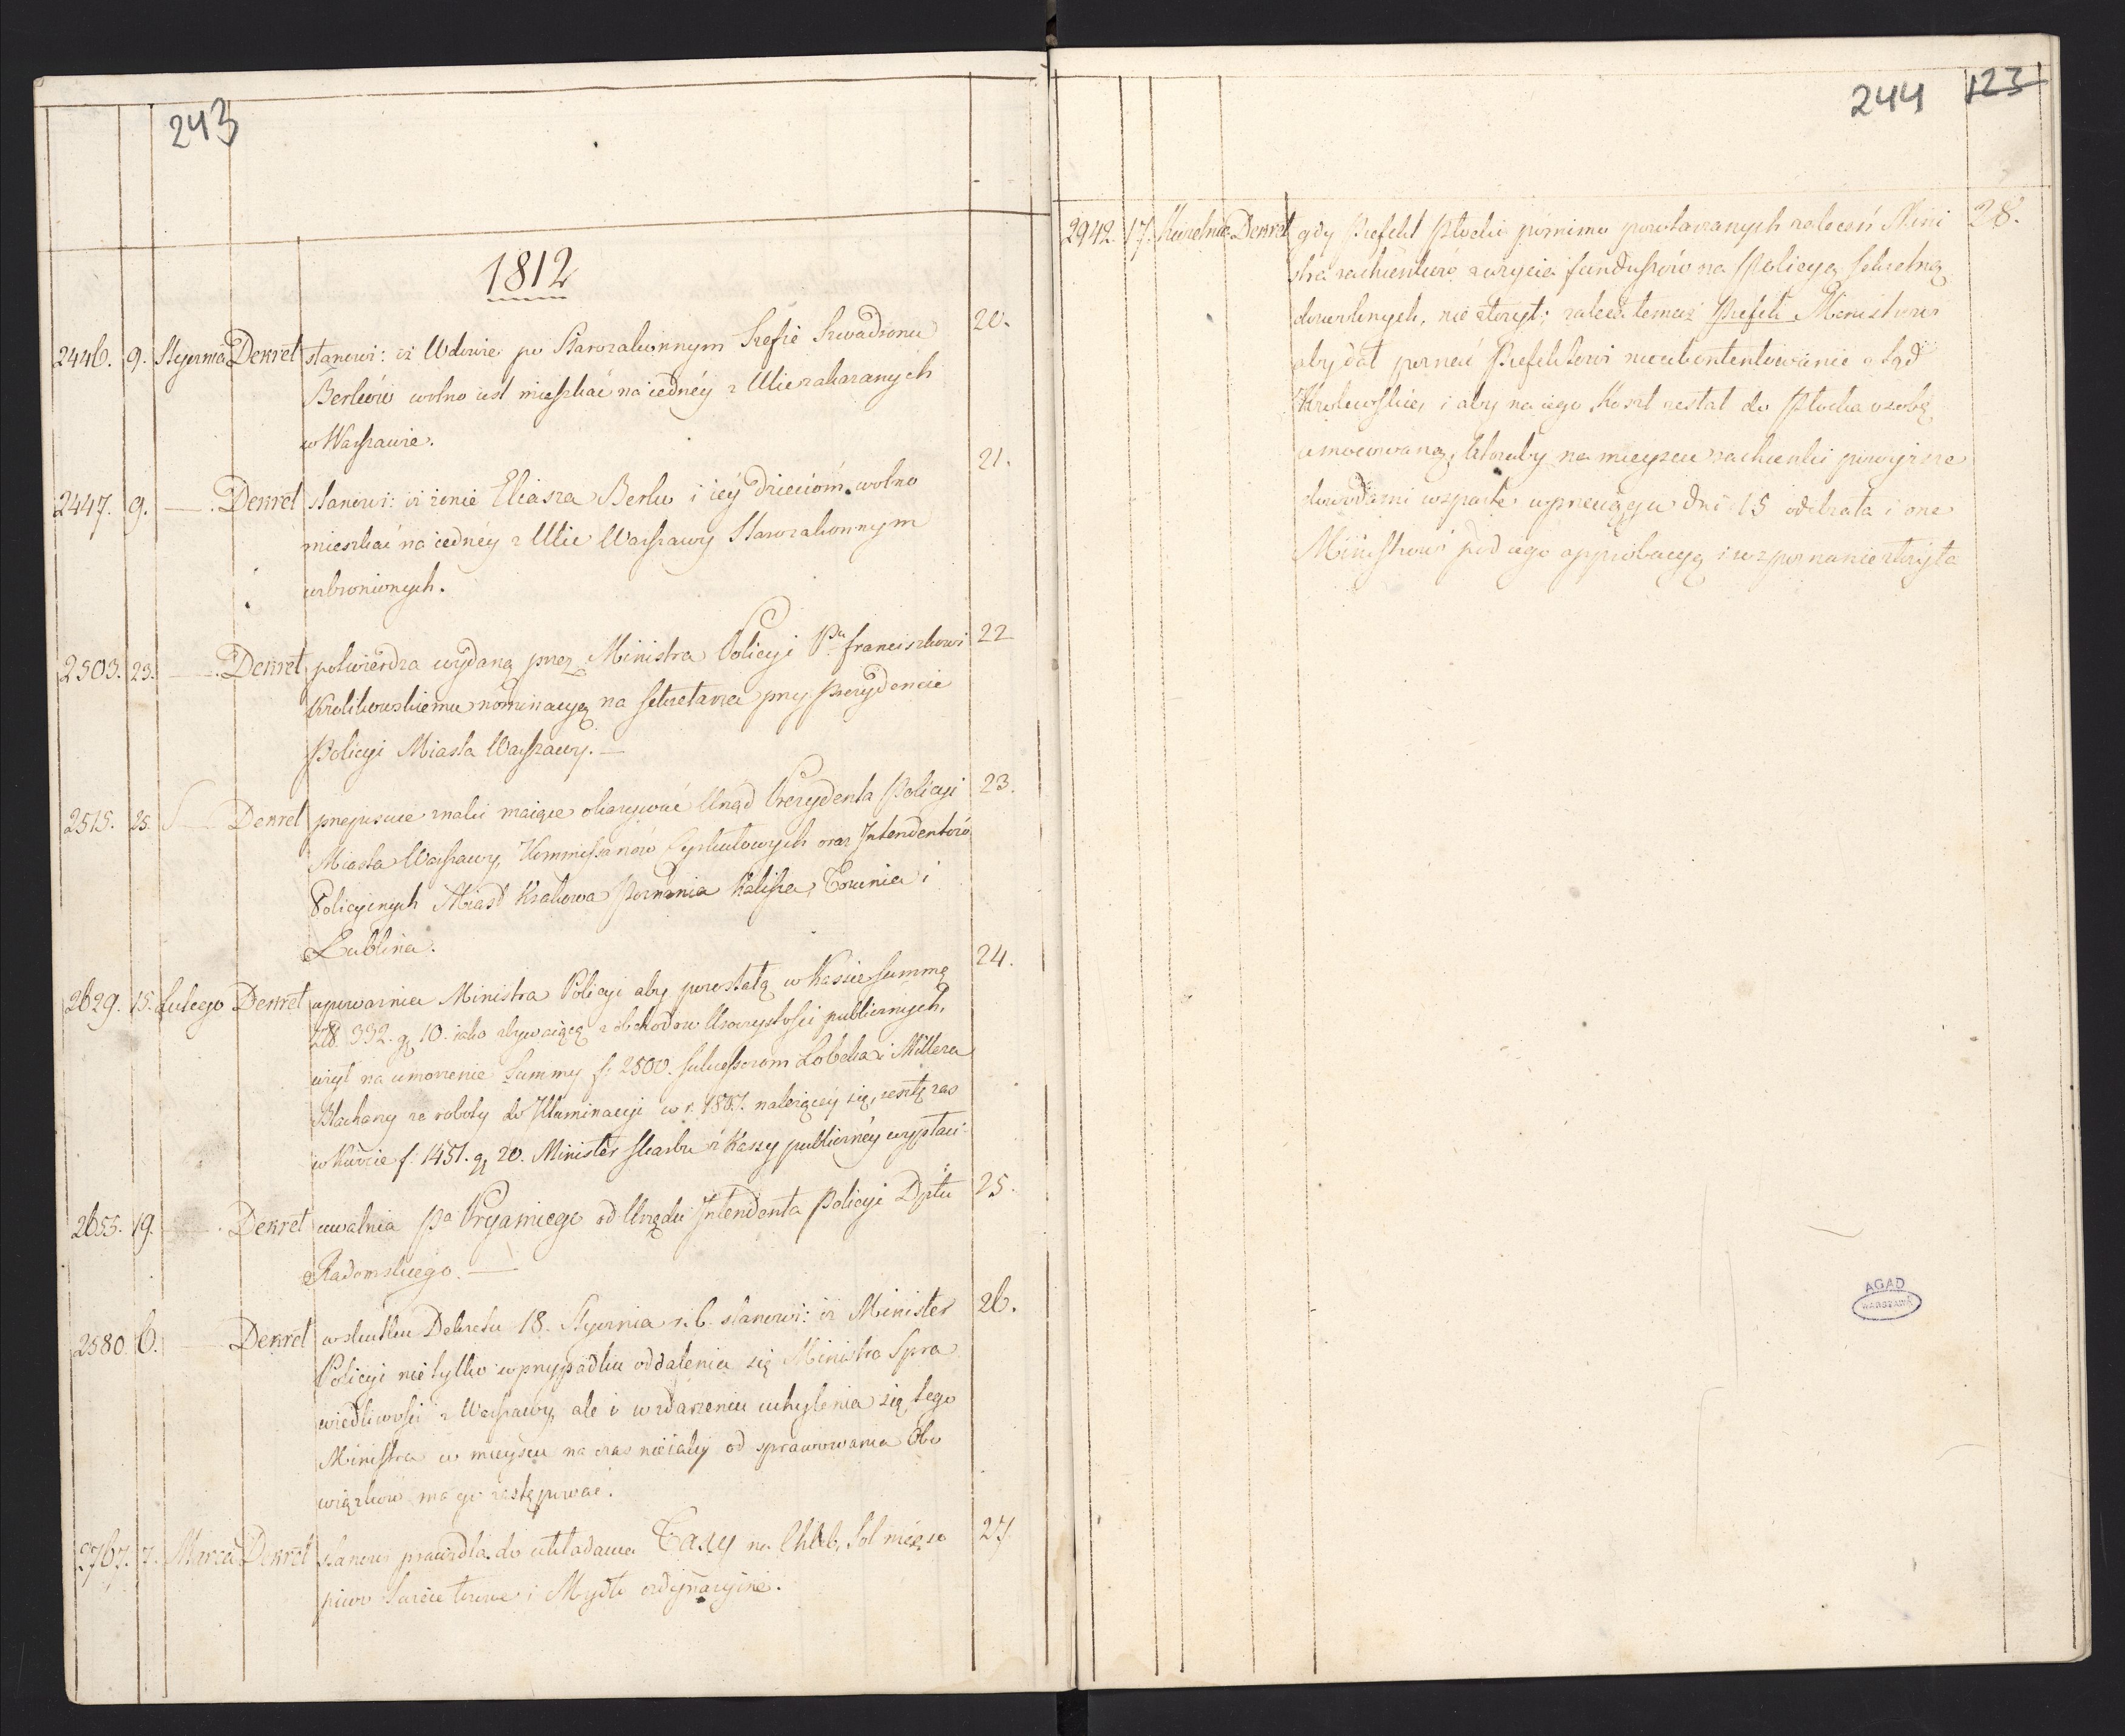 243
1812
2446. 9. Stycznia Dekret stanowi: iż Wdowie po Starozakonnym Szefie Szwadronu 20.
Berków wolno iest mieszkać na iednéy z Ulic zakazanych
w Warszawie.
2447. 9. — . Dekret stanowi: iż żonie Eliasza Berko i iéy dzieciom wolno 21.
mieszkać na iednéy z Ulic Warszawy Starozakonnym
wzbronionych.
2503. 23. — . Dekret potwierdza wydaną przez Ministra Policyi Pu franciszkowi 22
Krolikowskiemu nominacyą na sekretarza przy Prezydencie
Policyi Miasta Warszawy. —
2515. 25. — Dekret przepisuie znaki maiące okazywać Urząd Prezydenta Policyi 23.
Miasta Warszawy, Kommissarzów Cyrkułowych oraz Intendentów
Policyinych Miast Krakowa Poznania Kalisza, Torunia i
Lublina.
2629. 15. Lutego Dekret upoważnia Ministra Policyi aby pozostałą w Kassie summę 24.
Złp. 332. gr 10. iako zbywaiącą z obchodow Uroczystości publicznych,
użył na umorzenie Summy f. 2500. sukcessorom Lobeka i Millera
Blacharzy za roboty do Illuminacyi w r. 1807. należącéy się, resztę zas
w kwocie f. 1451. gr 20. Minister skarbu z Kassy publicznéy wypłaci.
2655. 19. — . Dekret uwalnia Pa Pryamiego od Urzędu Intendenta Policyi Dptu 25.
Radomskiego. —
2580. 6. — Dekret w skutku Dekretu 18. Stycznia r. b. stanowi: iż Minister 26.
Policyi nie tylko w przypadku oddalenia się Ministra Spra
wiedliwości z Warszawy, ale i w zdarzeniu uchylenia się tego
Ministra w mieyscu na czas nieiaky od sprawowania Obo
wiązków ma go zastępować.
2767. 7. Marca Dekret stanowi prawidła do układania Taxy na Chleb, Sol mięso 27
piwo swiece łoiowe i Mydło ordynaryine.
244 123
2942. 17. Kwietnia Dekret gdy Prefekt Płocki pomimo powtarzanych zaleceń Mini 28.
stra rachunków z użycia funduszów na Policyą sekretną
dozwolonych, nie złożył; zaleca temuż Prefek Ministrowi
aby dał poznać Prefektowi nieukontentowanie z tąd
Krolewskie, i aby na iego Koszt zesłał do Płocka osobę
umocowaną, ktoraby na mieyscu rachunki powyższe
dowodami wsparte w przeciągu dni 15 odebrała i one
Ministrowi pod iego approbacyą i rozpoznanie złożyła
AGAD
WARSZAWA